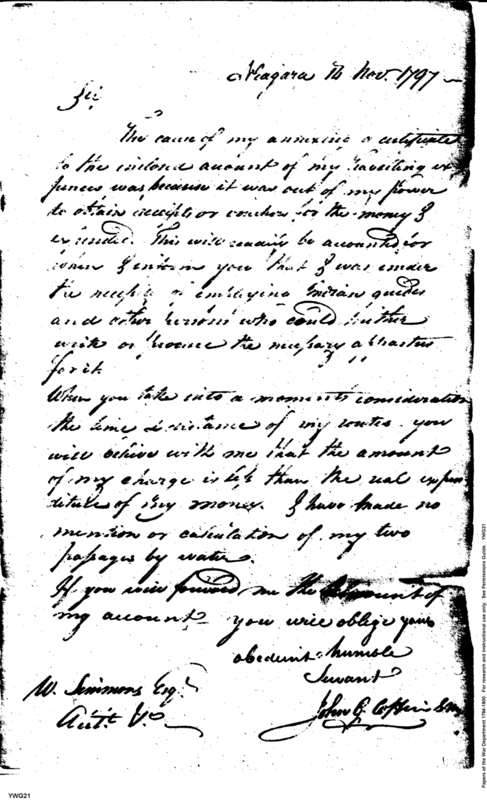 Niagara 14 Nov. 1797
Sir
The cause of my annexing a certificate
to the inclosed account of my travelling ex
pences was because it was out of my power
to obtain receipts or vouchers for the money I
expended. This will readily be accounted for
when I inform you that I was under
the necessity of employing Indian guides
and other persons who could neither
write or procure the necessary
for it
When you take into a moments consideration
the time & distance of my routes you
will believe with me that the amount
of my charge is less than the real expen
diture of my money. I have made no
mention or calculation of my two
passages by water.
If you will forward me the amount of
my account you will oblige your
obedient humble
Servant
W. Simmons Esqr.
John G. Coffin
YWG21
Papers of the War Department 1784-1800. For research and instructional use only. See Permissions Guide. YWG21